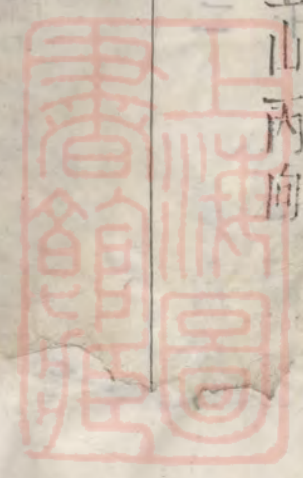 山丙向
上海圖
書館藏